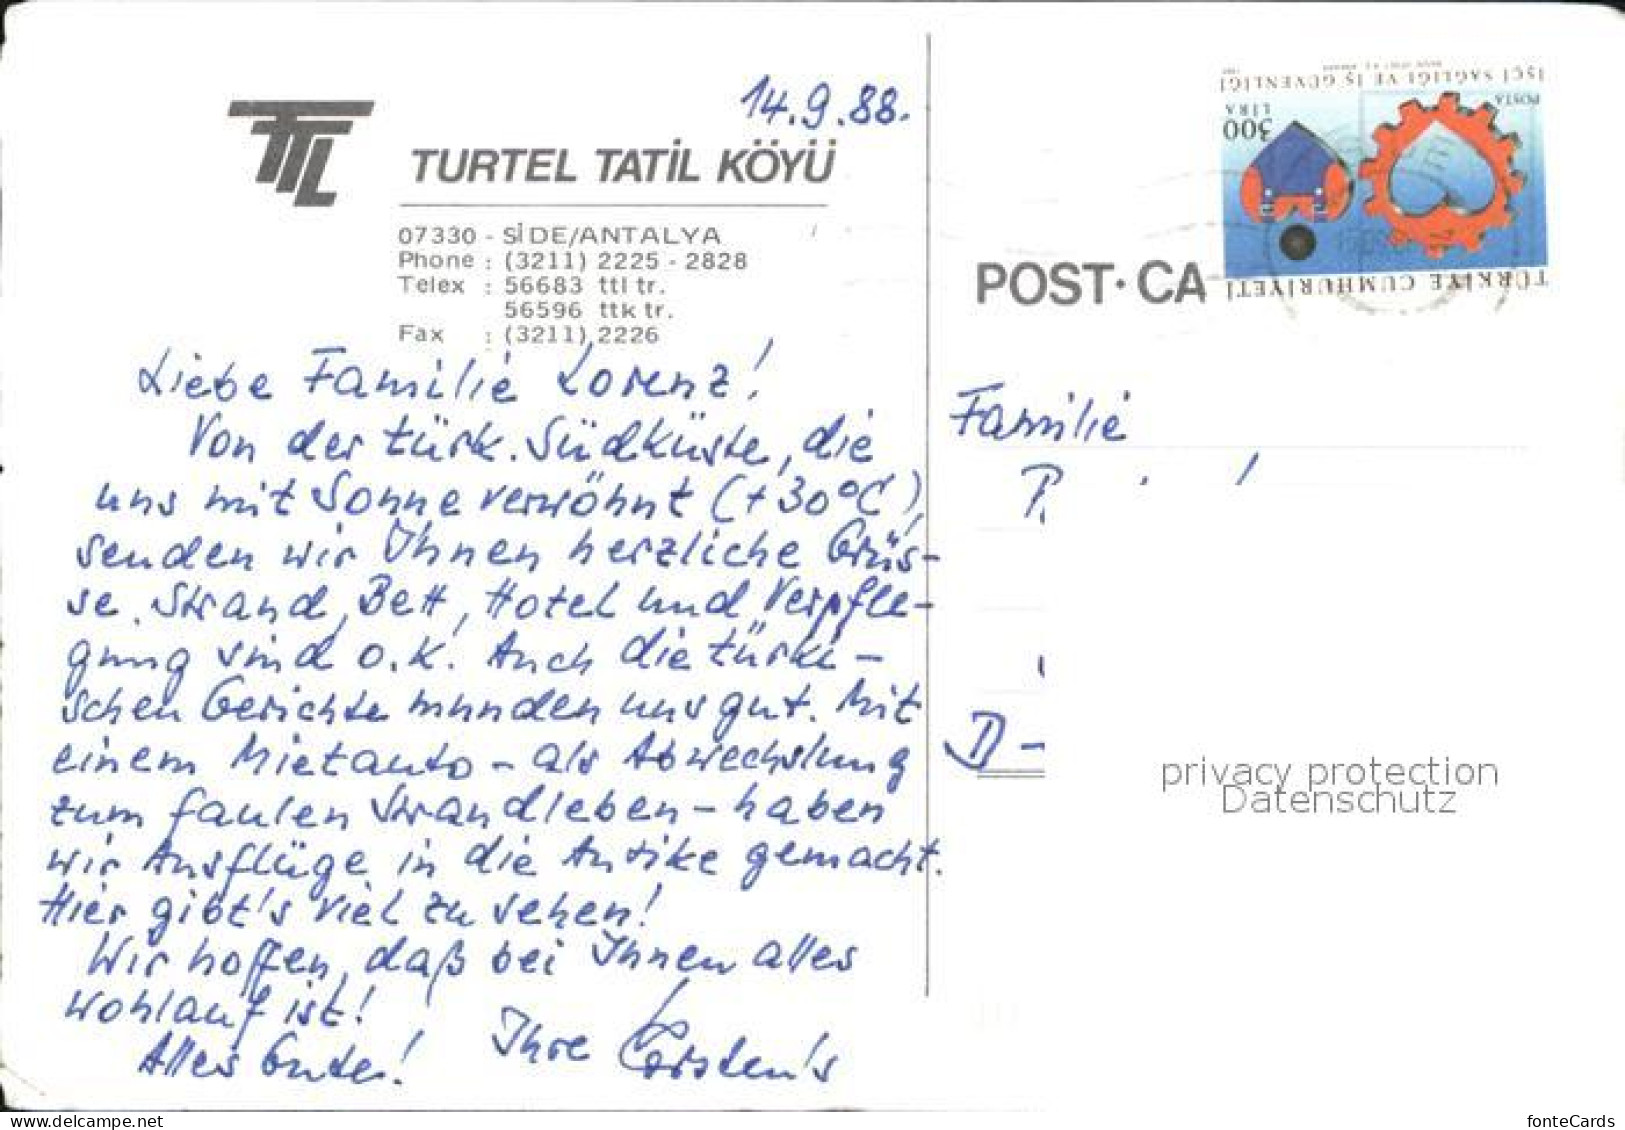 14.9.88.
TTL
TURTEL TATİL KÖYÜ
07330 - SİDE/ANTALYA
Phone : (3211) 2225 - 2828
Telex : 56683 ttl tr.
56596 ttk tr.
Fax : (3211) 2226
Liebe Familie Lorenz!
Von der türk. Südküste, die
uns mit Sonne verwöhnt (+30°C),
senden wir Ihnen herzliche Grüs-
se. Strand, Bett, Hotel und Verpfle-
gung sind o.k. Auch die türki-
schen Gerichte munden uns gut. Mit
einem Mietauto - als Abwechslung
zum faulen Strandleben - haben
wir Ausflüge in die Antike gemacht.
Hier gibt's viel zu sehen!
Wir hoffen, daß bei Ihnen alles
wohlauf ist!
Alles Gute! Ihre Corsten's
İŞÇİ SAĞLIĞI VE İŞ GÜVENLİĞİ
POSTA
300
LİRA
TÜRKİYE CUMHURİYETİ
POST·CA
Familie
D -
privacy protection
Datenschutz
delcampe.net
fonteCards